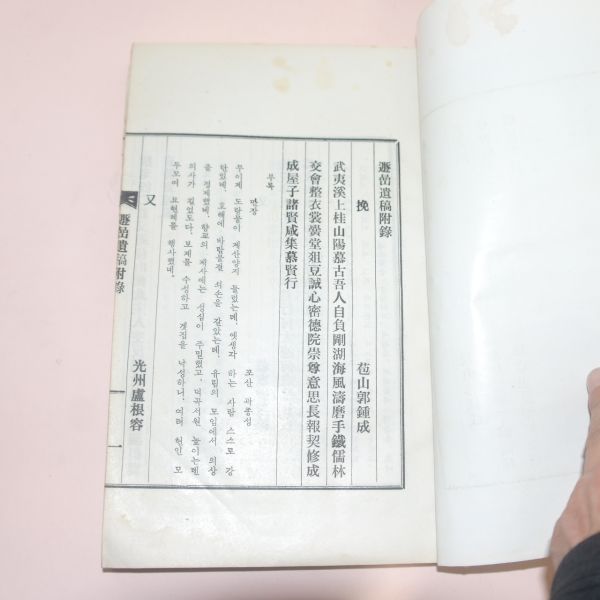 遯嵒遺稿附錄
挽
苞山郭鍾成
武夷溪上桂山陽慕古吾人自負剛湖海風濤磨手鐵儒林
交會整衣裳黌堂俎豆誠心密德院崇尊意思長報契修成
成屋子諸賢咸集慕賢行
부록
만장
포산 곽종성
무이계 도랑물이 계산양지 돌렸는데, 옛생각 하는 사람 스스로 강
한했네. 호해에 바람물결 쇠손을 갈았는데, 유림의 모임에서 의상
을 정제했네. 향교의 제사에는 성심이 주밀했고, 덕곡서원 높이는데
의사가 길었도다. 보계를 수성하고 겡집을 낙성하니, 여러 현인 모
두모여 효현례를 행사했네.
又
光州盧根容
遯嵒遺稿附錄
一